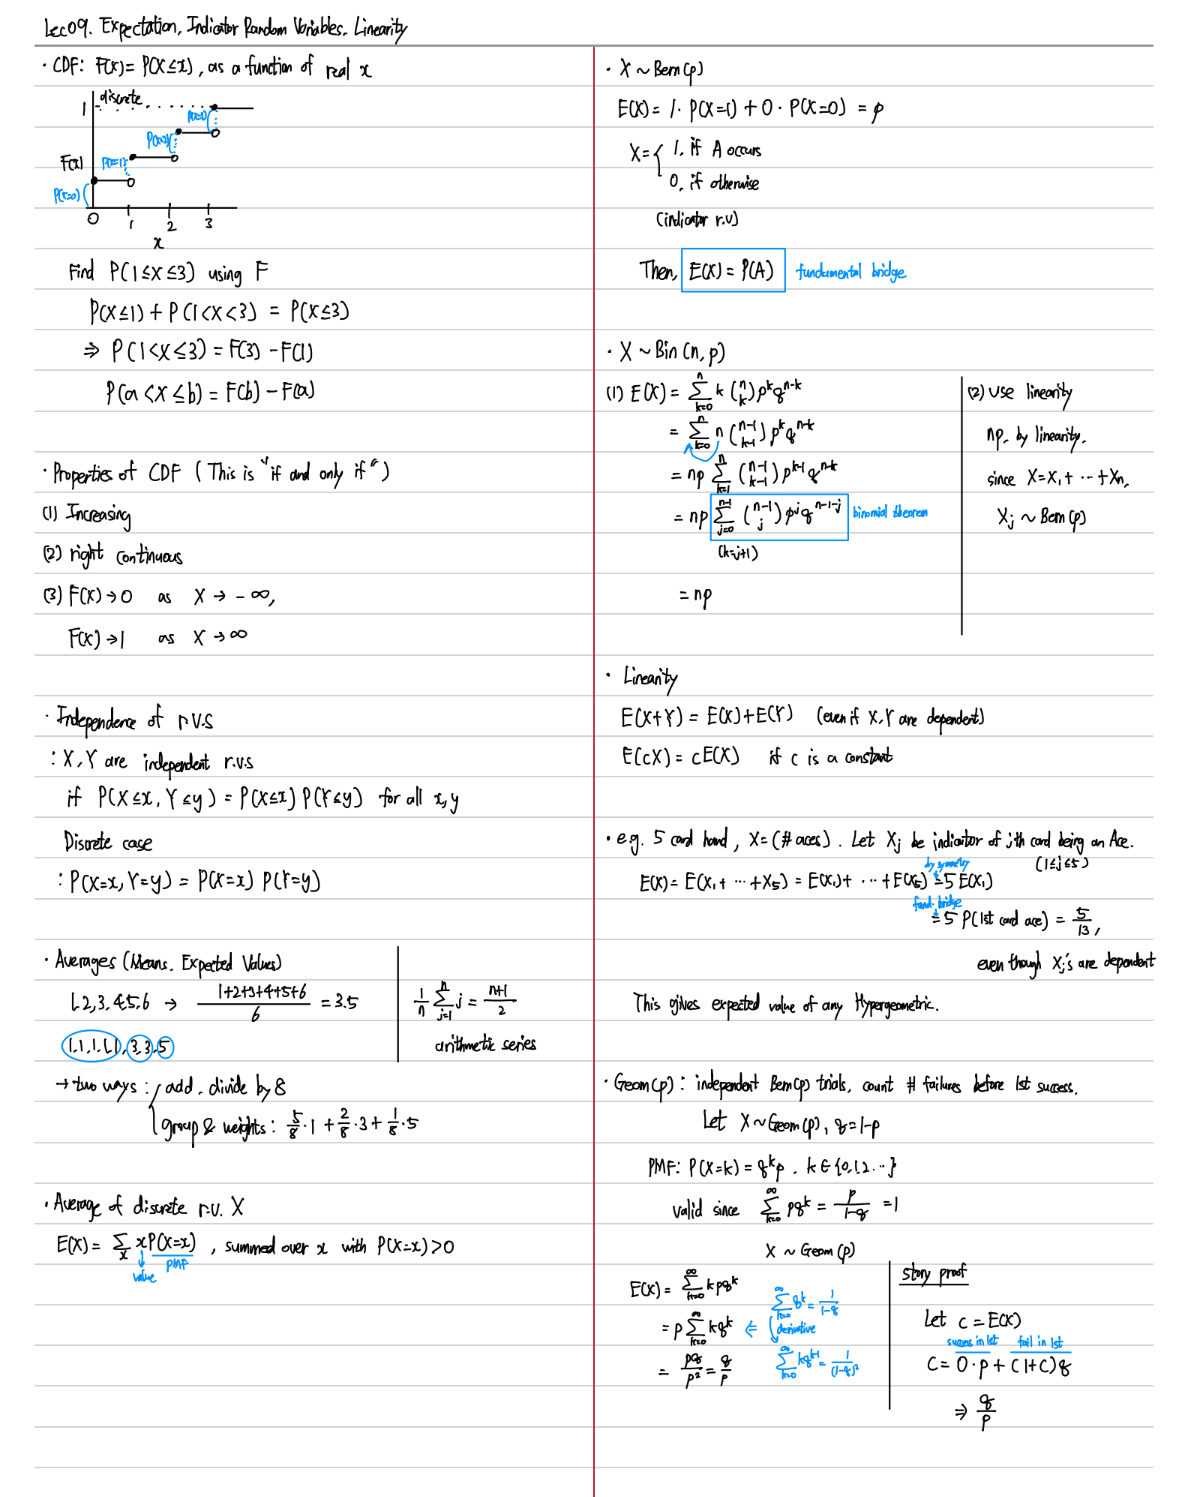 Lec09. Expectation, Indicator Random Variables, Linearity
· CDF: F(x) = P(X≤x), as a function of real x
discrete
1
F(x)
P(X=0)
P(X=1)
P(X=2)
P(X=3)
0 1 2 3
x
Find P(1≤x≤3) using F
P(X≤1) + P(1<X<3) = P(X≤3)
⇒ P(1<X≤3) = F(3) - F(1)
P(a<X≤b) = F(b) - F(a)
· Properties of CDF (This is "if and only if")
(1) Increasing
(2) right continuous
(3) F(X)→0 as X→-∞,
F(X)→1 as X→∞
· Independence of r.v.s
: X, Y are independent r.v.s
if P(X≤x, Y≤y) = P(X≤x) P(Y≤y) for all x, y
Discrete case
: P(X=x, Y=y) = P(X=x) P(Y=y)
· Averages (Means, Expected Values)
1, 2, 3, 4, 5, 6 → (1+2+3+4+5+6)/6 = 3.5
1, 1, 1, 1, 1, 3, 3, 5
→ two ways: add, divide by 8
group & weights: 5/8·1 + 2/8·3 + 1/8·5
1/n Σ_{j=1}^{n} j = (n+1)/2
arithmetic series
· Average of discrete r.v. X
E(X) = Σ_x x P(X=x), summed over x with P(X=x)>0
value PMF
· X ~ Bern(p)
E(X) = 1·P(X=1) + 0·P(X=0) = p
X = { 1, if A occurs
0, if otherwise
(indicator r.v)
Then, E(X) = P(A) fundamental bridge
· X ~ Bin(n, p)
(1) E(X) = Σ_{k=0}^{n} k (n k) p^k q^{n-k}
= Σ_{k=0}^{n} n (n-1 k-1) p^k q^{n-k}
= np Σ_{k=1}^{n} (n-1 k-1) p^{k-1} q^{n-k}
= np Σ_{j=0}^{n-1} (n-1 j) p^j q^{n-1-j} binomial theorem
(k=j+1)
= np
(2) use linearity
np, by linearity,
since X = X₁ + ··· + Xn,
Xj ~ Bern(p)
· Linearity
E(X+Y) = E(X)+E(Y) (even if X, Y are dependent)
E(cX) = cE(X) if c is a constant
· e.g. 5 card hand, X = (# aces). Let Xj be indicator of jth card being an Ace.
(1≤j≤5)
by symmetry
E(X) = E(X₁ + ··· + X₅) = E(X₁) + ··· + E(X₅) = 5 E(X₁)
fund. bridge
= 5 P(1st card ace) = 5/13,
even though Xj's are dependent
This gives expected value of any Hypergeometric.
· Geom(p): independent Bern(p) trials, count # failures before 1st success.
Let X ~ Geom(p), q = 1-p
PMF: P(X=k) = q^k p, k ∈ {0,1,2...}
valid since Σ_{k=0}^{∞} p q^k = p/(1-q) = 1
X ~ Geom(p)
E(X) = Σ_{k=0}^{∞} k p q^k
= p Σ_{k=0}^{∞} k q^k ⇐
= pq/p² = q/p
Σ_{k=0}^{∞} q^k = 1/(1-q)
derivative
Σ_{k=0}^{∞} k q^{k-1} = 1/(1-q)²
story proof
Let c = E(X)
success in 1st fail in 1st
C = 0·p + (1+C)q
⇒ q/p